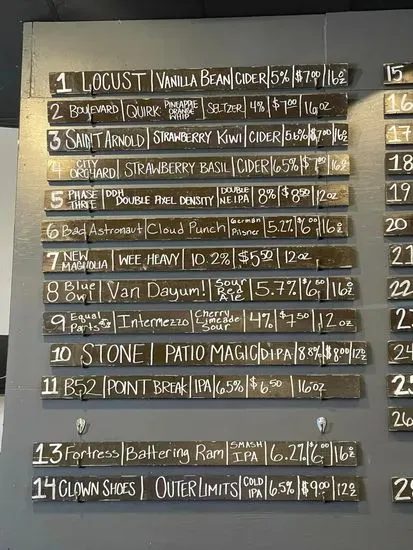 1 LOCUST | VANILLA BEAN | CIDER | 5% | $7.00 | 16oz
2 BOULEVARD | QUIRK: PINEAPPLE ORANGE WHIP | SELTZER | 4% | $7.00 | 16oz
3 SAINT ARNOLD | STRAWBERRY KIWI | CIDER | 5.6% | $7.00 | 16oz
4 CITY ORCHARD | STRAWBERRY BASIL | CIDER | 6.5% | $7 | 16oz
5 PHASE THREE | DDH DOUBLE PIXEL DENSITY | DOUBLE NEIPA | 8% | $8.50 | 12oz
6 Bad Astronaut | Cloud Punch | German Pilsner | 5.2% | $6.00 | 16oz
7 NEW MAGNOLIA | WEE HEAVY | 10.2% | $5.50 | 12oz
8 Blue Owl | Van Dayum! | Sour Red Ale | 5.7% | $6 | 16oz
9 Equal Parts | Intermezzo | Cherry Limeade Sour | 4% | $7.50 | 12oz
10 STONE | PATIO MAGIC | DIPA | 8.8% | $8.00 | 12oz
11 B52 | POINT BREAK | IPA | 6.5% | $6.50 | 16oz
13 Fortress | Battering Ram | SMASH IPA | 6.2% | $6 | 16oz
14 CLOWN SHOES | OUTER LIMITS | COLD IPA | 6.5% | $9.00 | 12oz
15
16
17
18
19
20
21
22
23
24
26